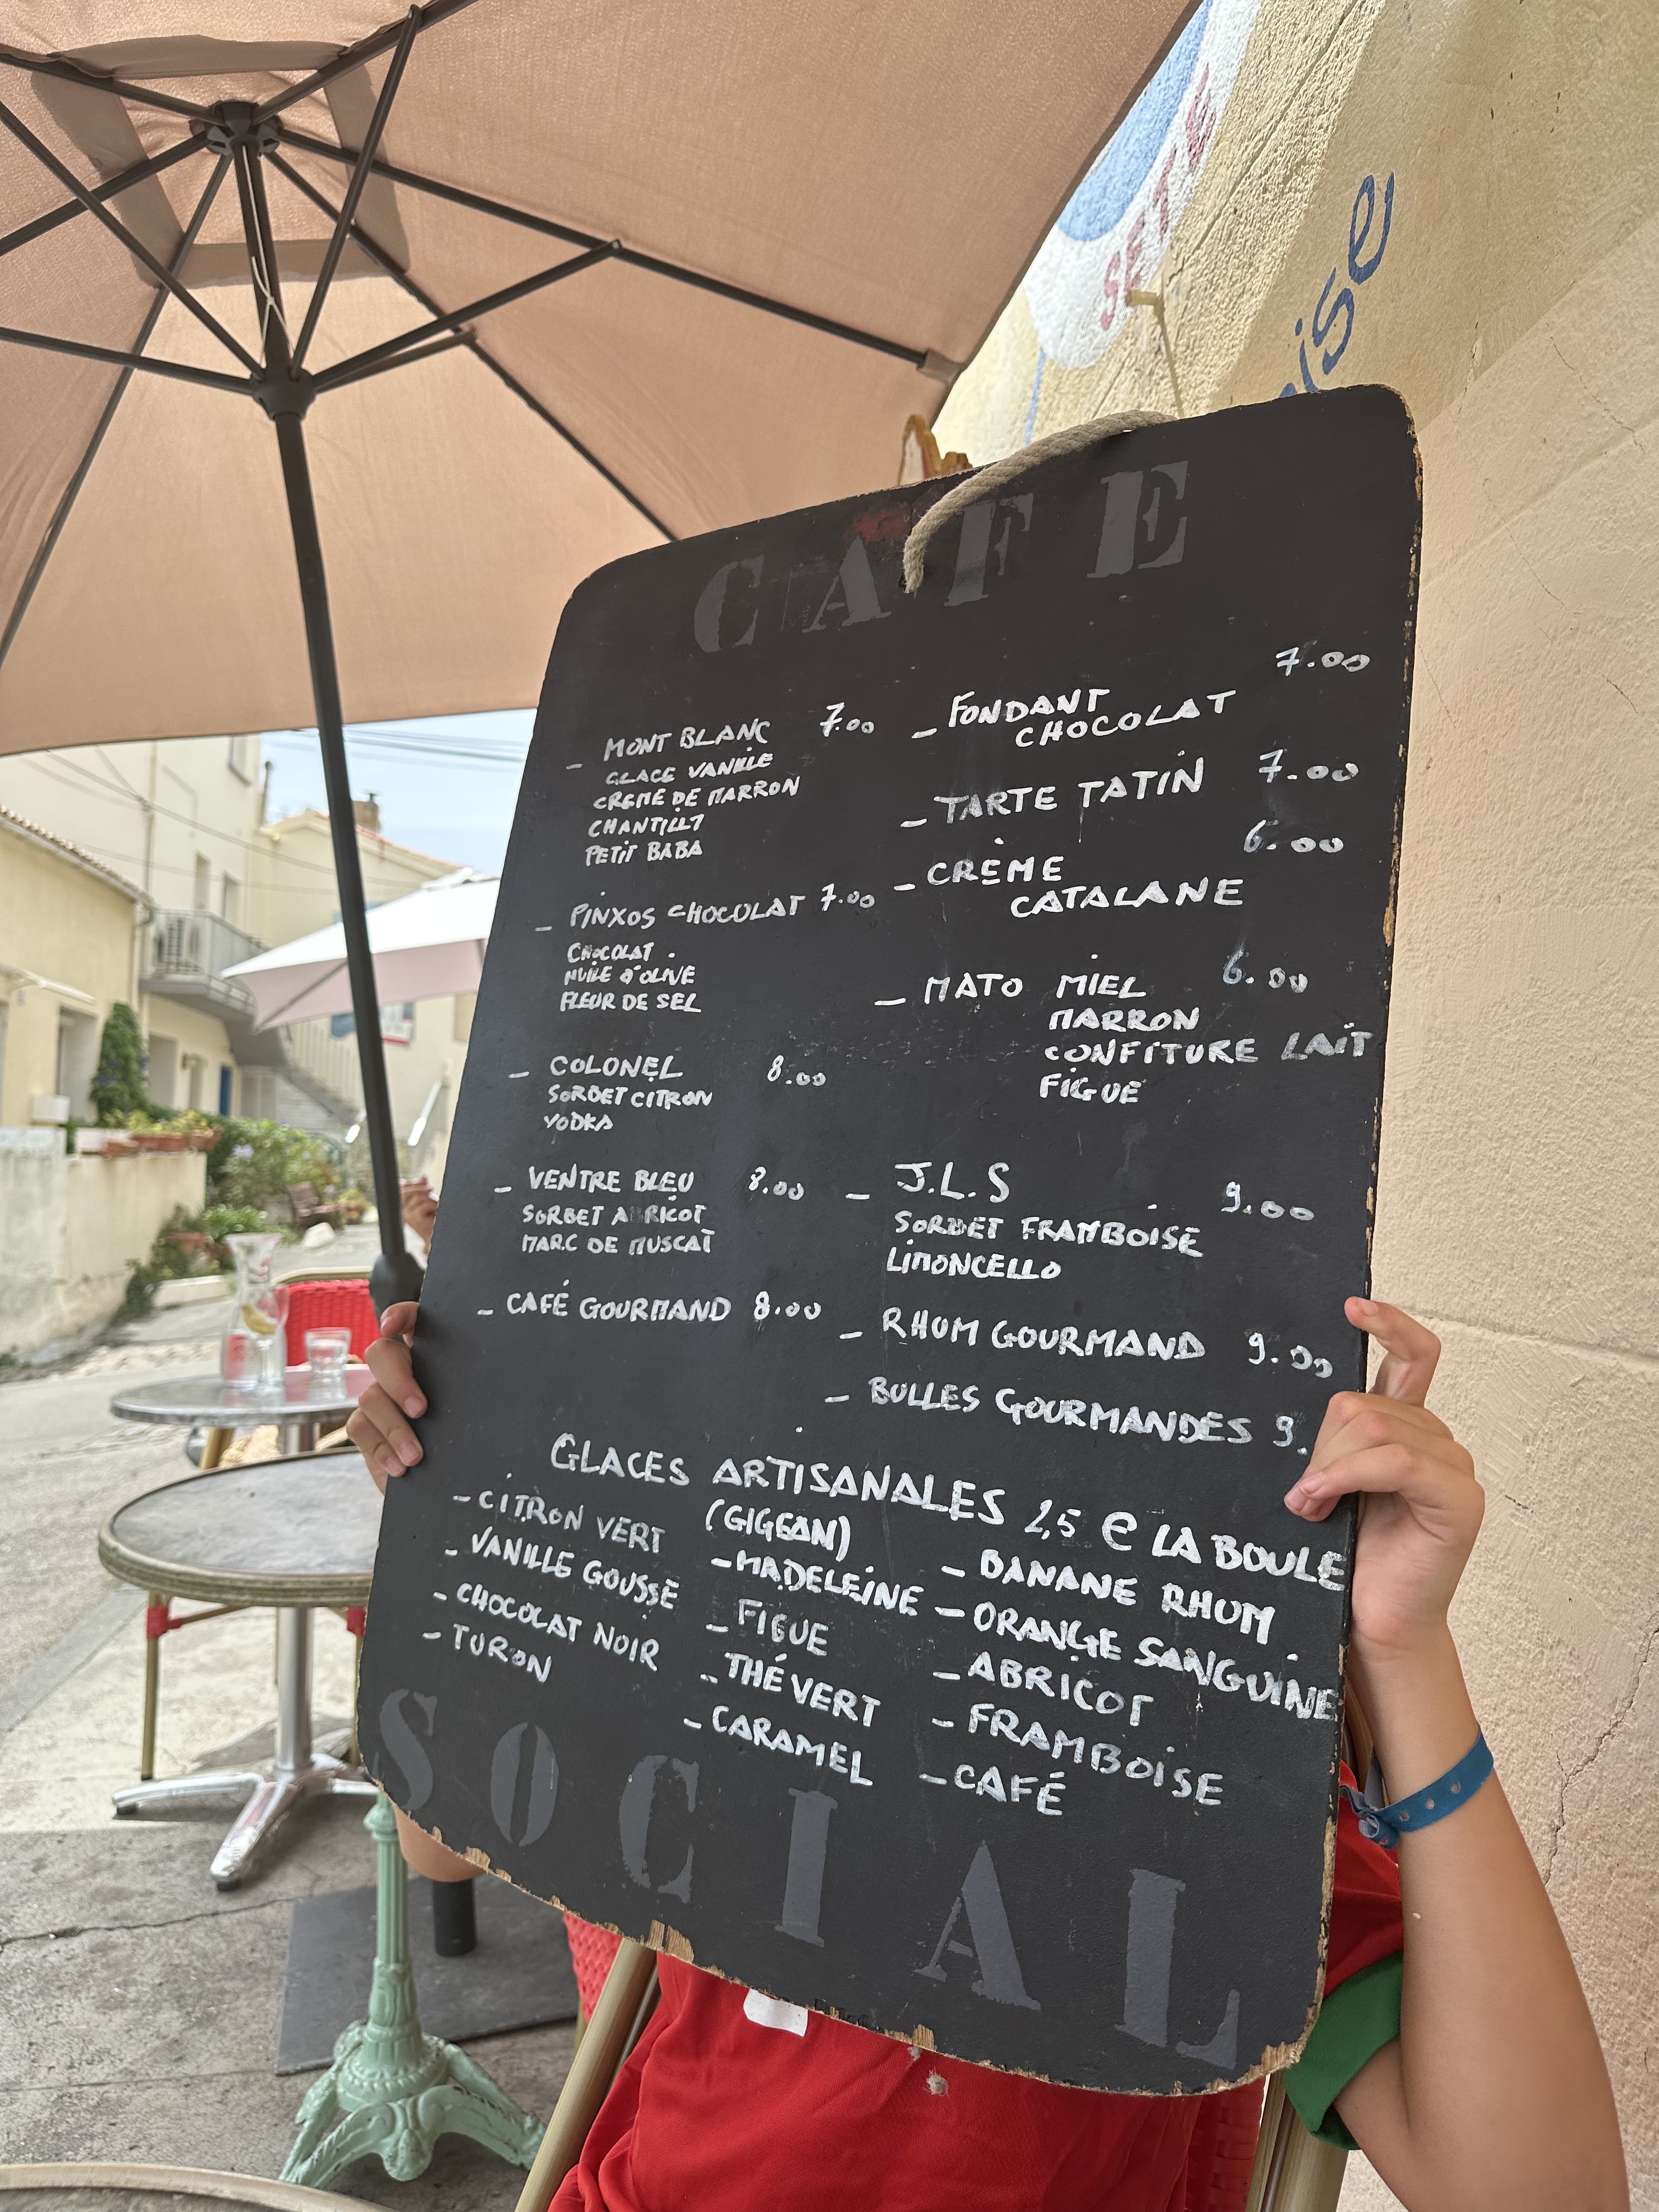 SETE
CAFE
– MONT BLANC 7.00
GLACE VANILLE
CREME DE MARRON
CHANTILLY
PETIT BABA
– PINXOS CHOCOLAT 7.00
CHOCOLAT
HUILE D'OLIVE
FLEUR DE SEL
– COLONEL 8.00
SORBET CITRON
VODKA
– VENTRE BLEU 8.00
SORBET ABRICOT
MARC DE MUSCAT
– CAFÉ GOURMAND 8.00
– FONDANT 7.00
CHOCOLAT
– TARTE TATIN 7.00
– CRÈME 6.00
CATALANE
– MATO MIEL 6.00
MARRON
CONFITURE LAIT
FIGUE
– J.L.S 9.00
SORBET FRAMBOISE
LIMONCELLO
– RHUM GOURMAND 9.00
– BULLES GOURMANDES 9.
GLACES ARTISANALES 2,5 € LA BOULE
(GIGEAN)
– CITRON VERT
– VANILLE GOUSSE
– CHOCOLAT NOIR
– TURON
– MADELEINE
– FIGUE
– THÉ VERT
– CARAMEL
– BANANE RHUM
– ORANGE SANGUINE
– ABRICOT
– FRAMBOISE
– CAFÉ
SOCIAL